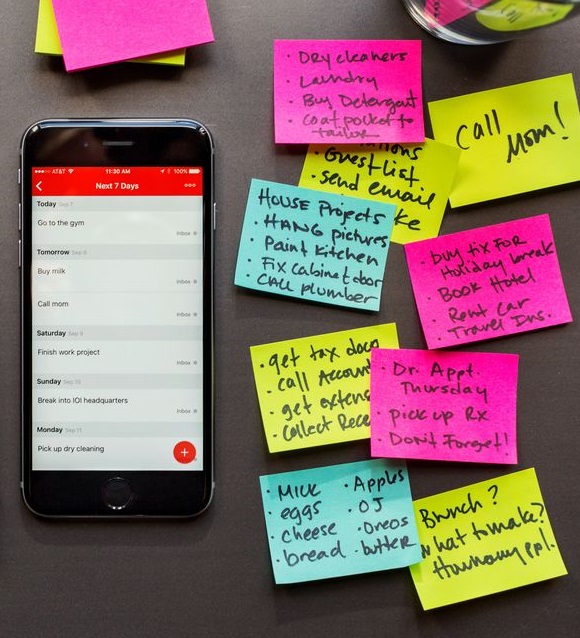 AT&T 11:30 AM 100%
Next 7 Days
Today Sep 7
Go to the gym
Inbox
Tomorrow Sep 8
Buy milk
Inbox
Call mom
Inbox
Saturday Sep 9
Finish work project
Inbox
Sunday Sep 10
Break into IOI headquarters
Inbox
Monday Sep 11
Pick up dry cleaning
+
· Dry cleaners
· Laundry
· Buy Detergent
· Coat pocket to
tailor
Call
Mom!
Guest list
- send email
House Projects
· HANG pictures
· Paint Kitchen
· Fix Cabinet door
· CALL plumber
· buy tix FOR
Holiday break
· Book Hotel
· Rent Car
· Travel Ins.
· get tax docs
· call
· get
· collect
· Dr. Appt.
Thursday
· pick up Rx
· Don't Forget!
· Milk
· eggs
· cheese
· bread
· Apples
· OJ
· Oreos
· butter
Brunch?
what to make?
How many ppl.